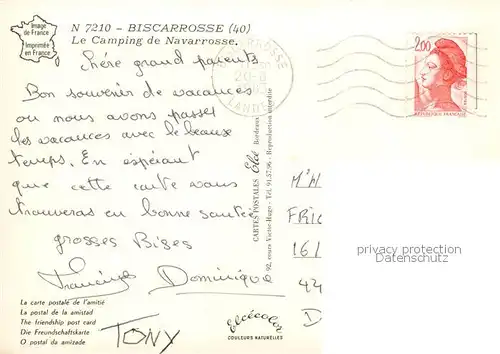 Image
de France
Imprimée
en France
N 7210 – BISCARROSSE (40)
Le Camping de Navarrosse.
Chère grand parents
Bon souvenir de vacances
ou nous avons passer
les vacances avec le beaux
temps. En espérant
que cette carte vous
trouveras en bonne santée
grosses Bises
Dominique
TONY
La carte postale de l'amitié
La postal de la amistad
The friendship post card
Die Freundschaftskarte
O postal da amizade
CARTES POSTALES Elcé Bordeaux
92, cours Victor-Hugo - Tél. 91-57-96 - Reproduction interdite
Elcécolor
COULEURS NATURELLES
LANDES
2,00
REPUBLIQUE FRANÇAISE
FRIC
16/
42
D
privacy protection
Datenschutz